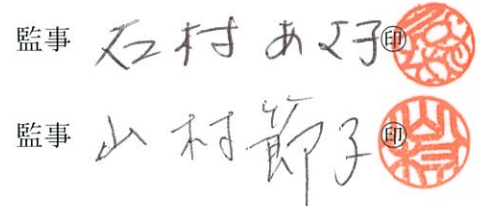 監事 石村 あや子 ㊞
監事 山村 節子 ㊞